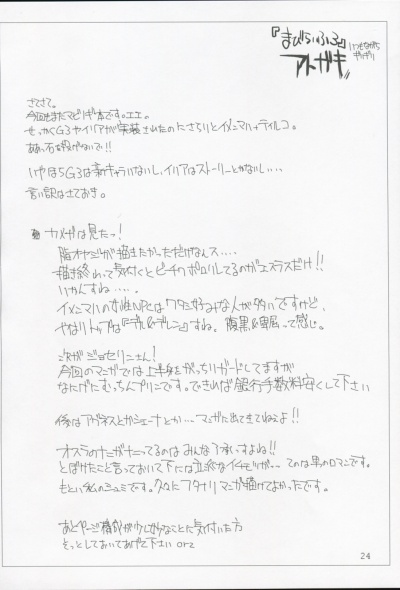 『まびらいふ3』
アトガキ
いつもながら
ギリギリ
さてさて。
今回もまたマビノギ本です。エエ。
せっかくG3やイリアが実装されたのにさらりとイメンマハ+ティルコ。
ああっ石を投げないで!!
いやほらG3は新キャラいないし、イリアはストーリーとかないし...
言い訳はさておき。
は見たっ!
脂オヤジが描きたかっただけなんス....
描き終わって気付くとビーチクポロリしてるのがエスラスだけ!!
いかんすね.....
イメンマハの女性NPCはワタシ好みな人が多いですけど、
やはりトップは『デル&デレン』すね。腹黒&卑屈って感じ。
次がジョセリンさん!
今回のマンガでは上半身をがっちりガードしてますが
なにげにむっちんプリンです。できれば銀行手数料安くして下さい
後はアグネスとかシェーナとか...マンガに出てきてねぇよ!!
オスラのナニがナニってるのはみんな了承っすよね!!
とぼけたこと言っておいて下には立派なイチモツが..てのは男のロマンです。
もとい私のシュミです。久々にフタナリマンガ描けてよかったです。
あとページ構成が少し妙なことに気付いた方
そっとしておいてあげて下さい orz
24